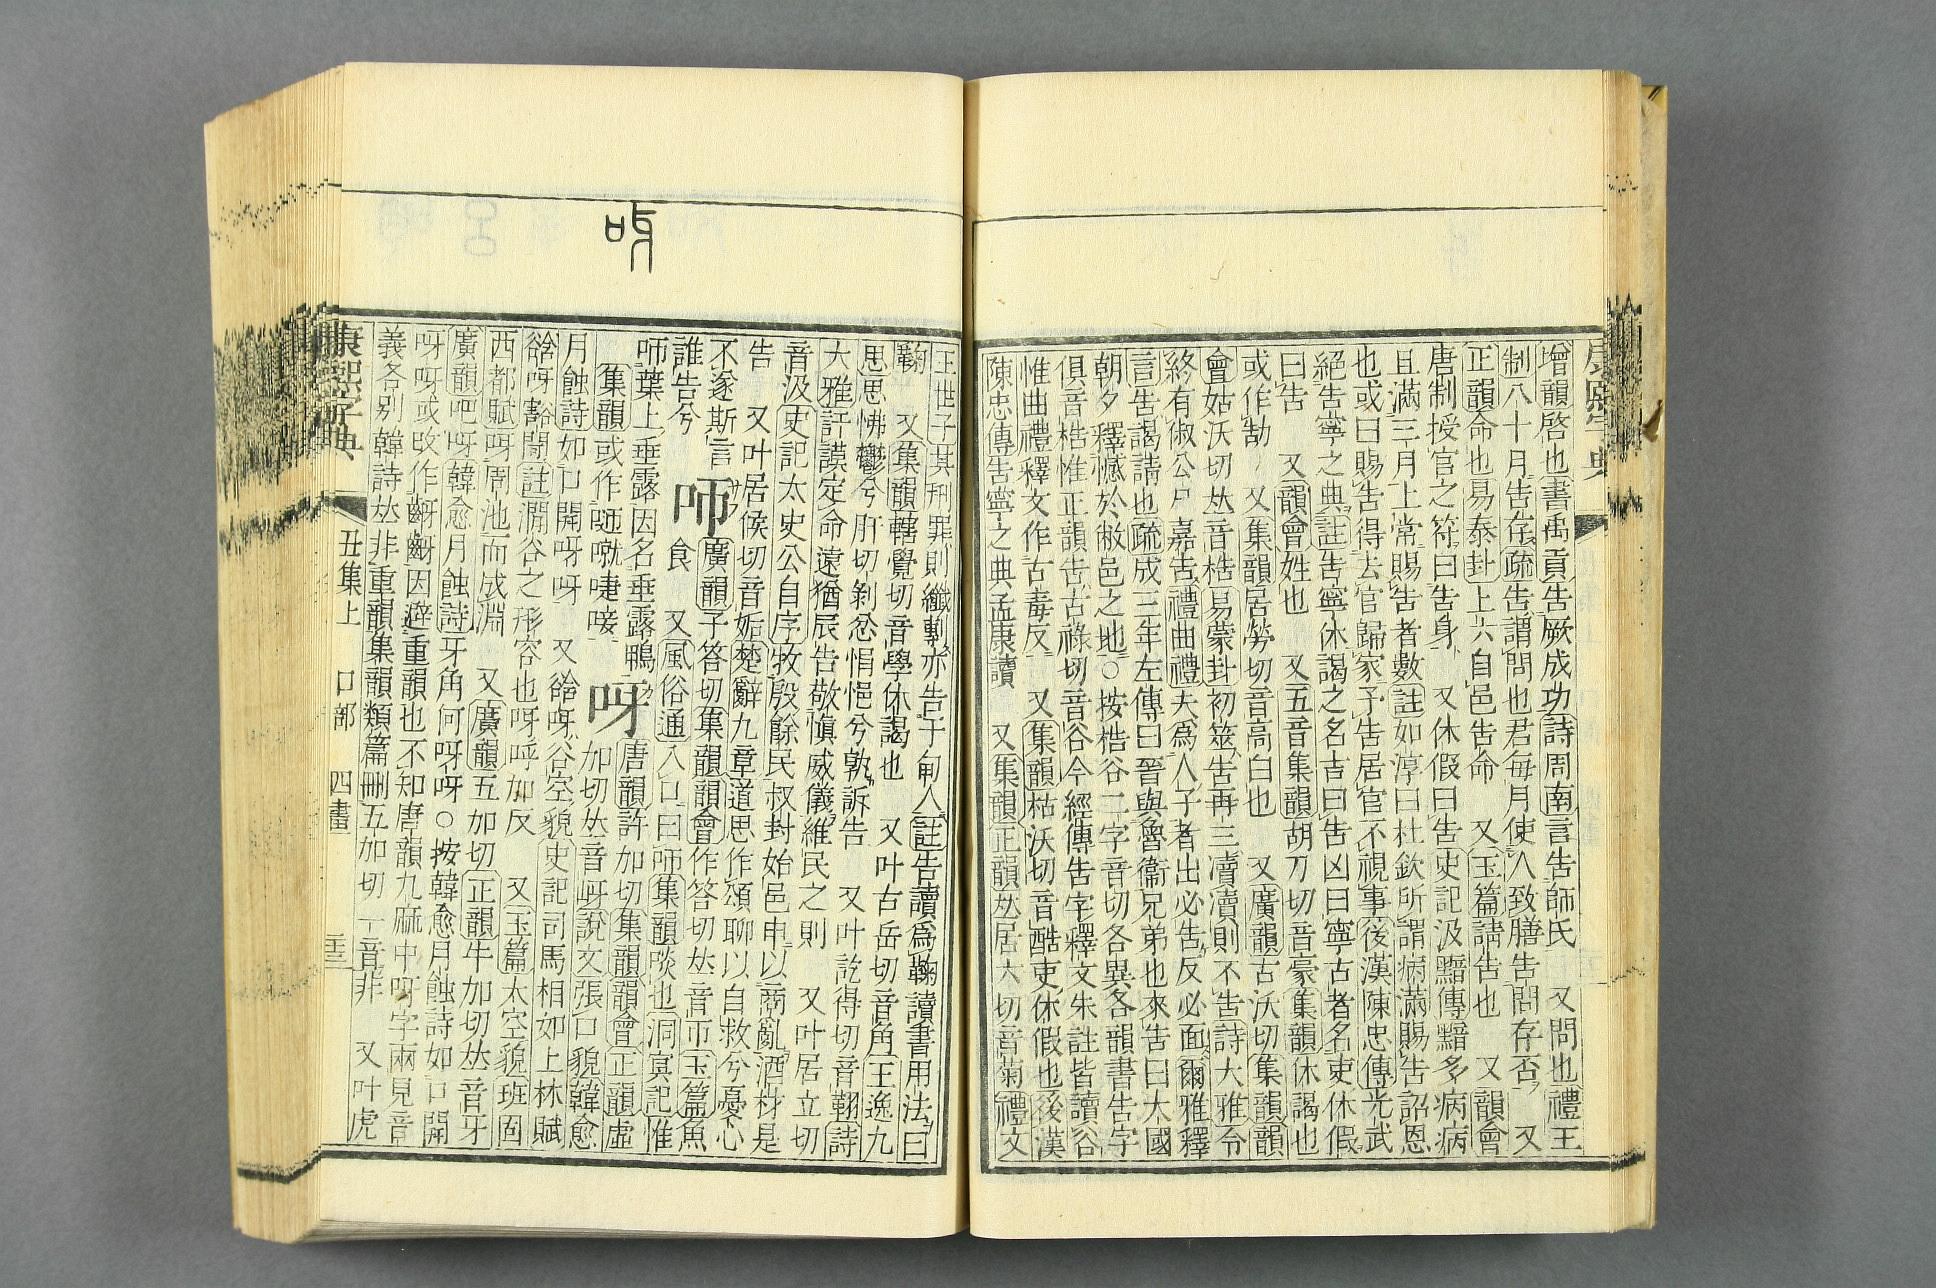 增韻啓也書禹貢告厥成功詩周南言告師氏 又問也禮王
制八十月告存疏告謂問也君每月使人致膳告問存否 又
正韻命也易泰卦上六自邑告命 又玉篇請告也 又韻會
唐制授官之符曰告身 又休假曰告史記汲黯傳黯多病病
且滿三月上常賜告者數註如淳曰杜欽所謂病滿賜告詔恩
也或曰賜告得去官歸家予告居官不視事後漢陳忠傳光武
絕告寧之典註告寧休謁之名吉曰告凶曰寧古者名吏休假
曰告 又韻會姓也 又五音集韻胡刀切音豪集韻休謁也
或作勂 又集韻居勞切音高白也 又廣韻古沃切集韻韻
會姑沃切𠀤音梏易蒙卦初筮告再三瀆瀆則不告詩大雅令
終有俶公尸嘉告禮曲禮夫為人子者出必告反必面爾雅釋
言告謁請也疏成三年左傳曰晉與魯衞兄弟也來告曰大國
朝夕釋憾於敝邑之地○按梏谷二字音切各異各韻書告字
俱音梏惟正韻告古祿切音谷今經傳告字釋文朱註皆讀谷
惟曲禮釋文作古毒反 又集韻枯沃切音酷吏休假也後漢
陳忠傳告寧之典孟康讀 又集韻正韻𠀤居六切音菊禮文
王世子其刑罪則纖剸亦告于甸人註告讀為鞠讀書用法曰
鞠 又集韻轄覺切音學休謁也 又叶古岳切音角王逸九
思思怫鬱兮肝切剝忿悁悒兮孰訴告 又叶訖得切音𨐡詩
大雅訏謨定命遠猶辰告敬愼威儀維民之則 又叶居立切
音汲史記太史公自序牧殷餘民叔封始邑申以商亂酒材是
告 又叶居候切音姤楚辭九章道思作頌聊以自救兮憂心
不遂斯言
誰告兮
咘
廣韻子答切集韻韻會作答切𠀤音帀玉篇魚
食 又風俗通入口曰咘集韻啖也洞冥記惟
咘葉上垂露因名垂露鴨
呀
唐韻許加切集韻韻會正韻虛
加切𠀤音岈說文張口貌韓愈
月蝕詩如口開呀呀 又谽呀谷空貌史記司馬相如上林賦
谽呀豁閜註澗谷之形容也呀呼加反 又玉篇大空貌班固
西都賦呀周池而成淵 又廣韻五加切正韻牛加切𠀤音牙
廣韻吧呀韓愈月蝕詩牙角何呀呀○按韓愈月蝕詩如口開
呀呀或改作齖齖因避重韻也不知唐韻九麻中呀字兩見音
義各別韓詩𠀤非重韻集韻類篇刪五加切一音非 又叶虎
康熙字典
丑集上 口部 四畫